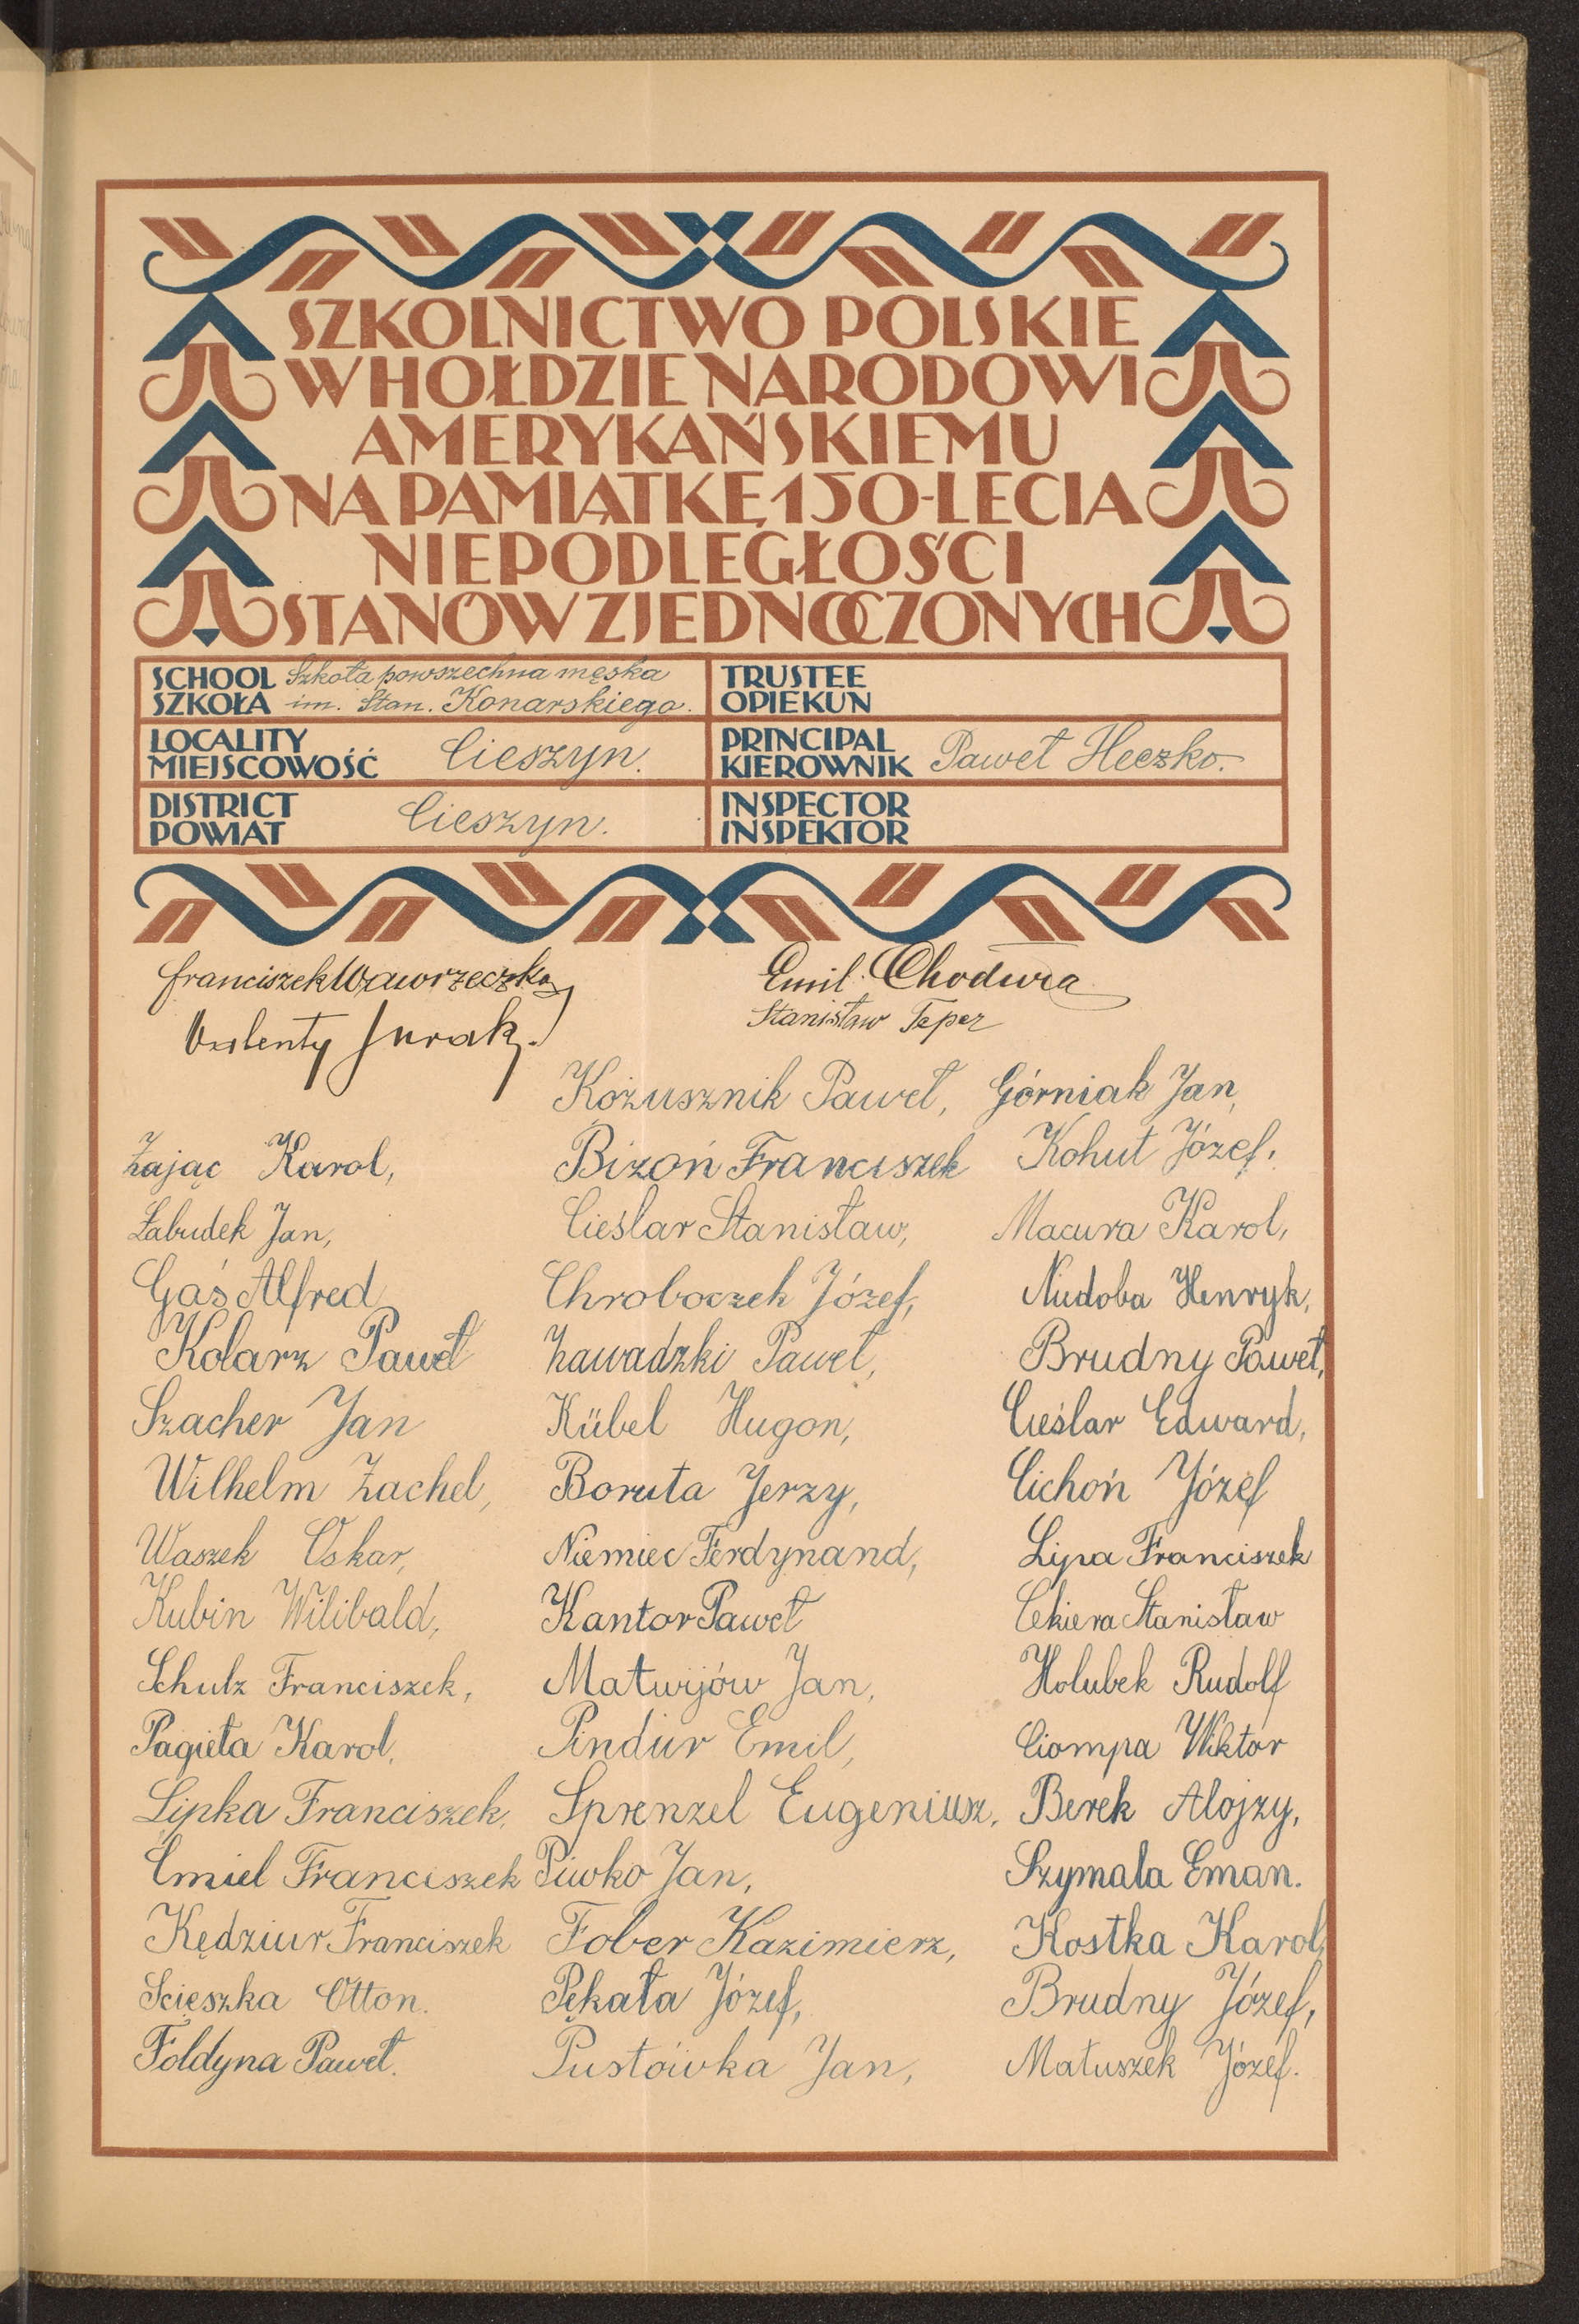 SZKOLNICTWO POLSKIE
W HOŁDZIE NARODOWI
AMERYKAŃSKIEMU
NA PAMIĄTKĘ 150-LECIA
NIEPODLEGŁOŚCI
STANÓW ZJEDNOCZONYCH
SCHOOL Szkoła powszechna męska
SZKOŁA im. Stan. Konarskiego.
TRUSTEE
OPIEKUN
LOCALITY
MIEJSCOWOŚĆ Cieszyn.
PRINCIPAL
KIEROWNIK Paweł Heczko.
DISTRICT
POWIAT Cieszyn.
INSPECTOR
INSPEKTOR
Franciszek Wawrzeczko
Walenty Jurak.
Emil Chodura
Stanisław Teper
Zając Karol,
Łabudek Jan,
Gaś Alfred
Kolarz Paweł
Szacher Jan
Wilhelm Zachel,
Waszek Oskar,
Kubin Wilibald,
Schulz Franciszek,
Pagieła Karol,
Lipka Franciszek,
Emiel Franciszek
Kędziur Franciszek
Scieszka Otton.
Foldyna Paweł.
Kożusznik Paweł,
Bizoń Franciszek
Cieślar Stanisław,
Chroboczek Józef,
Zawadzki Paweł,
Kübel Hugon,
Boruta Jerzy,
Niemiec Ferdynand,
Kantor Paweł
Matwijów Jan,
Pindur Emil,
Sprenzel Eugeniusz,
Piwko Jan,
Fober Kazimierz,
Pękała Józef,
Pustówka Jan,
Górniak Jan,
Kohut Józef,
Macura Karol,
Nudoba Henryk,
Brudny Paweł,
Cieślar Edward,
Cichoń Józef
Lipa Franciszek
Cekiera Stanisław
Holubek Rudolf
Ciompa Wiktor
Berek Alojzy,
Szymala Eman.
Kostka Karol,
Brudny Józef,
Matuszek Józef.